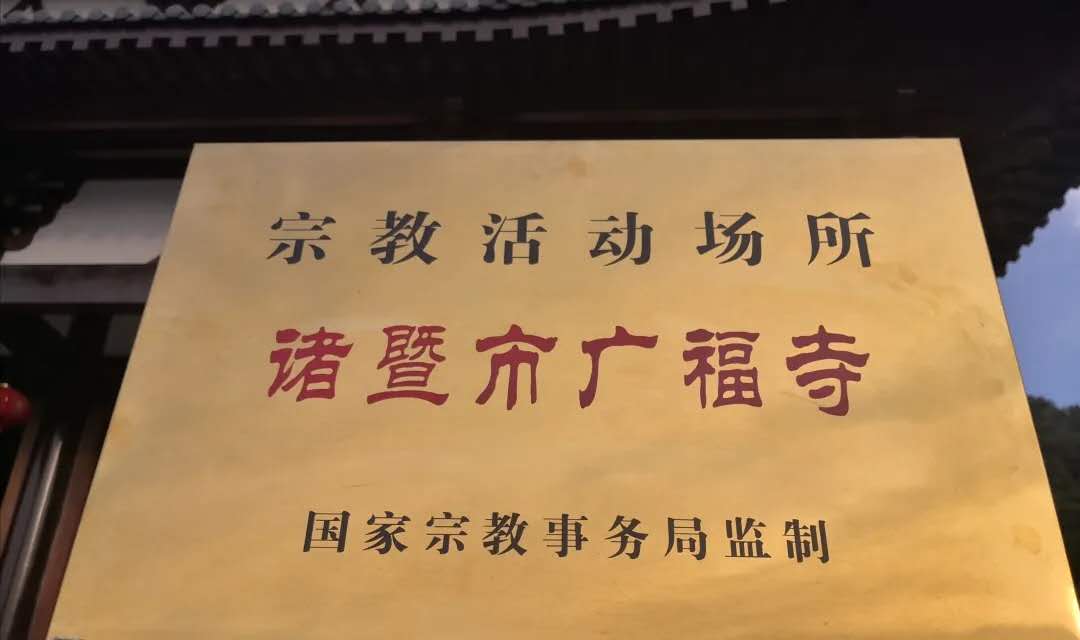 宗教活动场所
诸暨市广福寺
国家宗教事务局监制